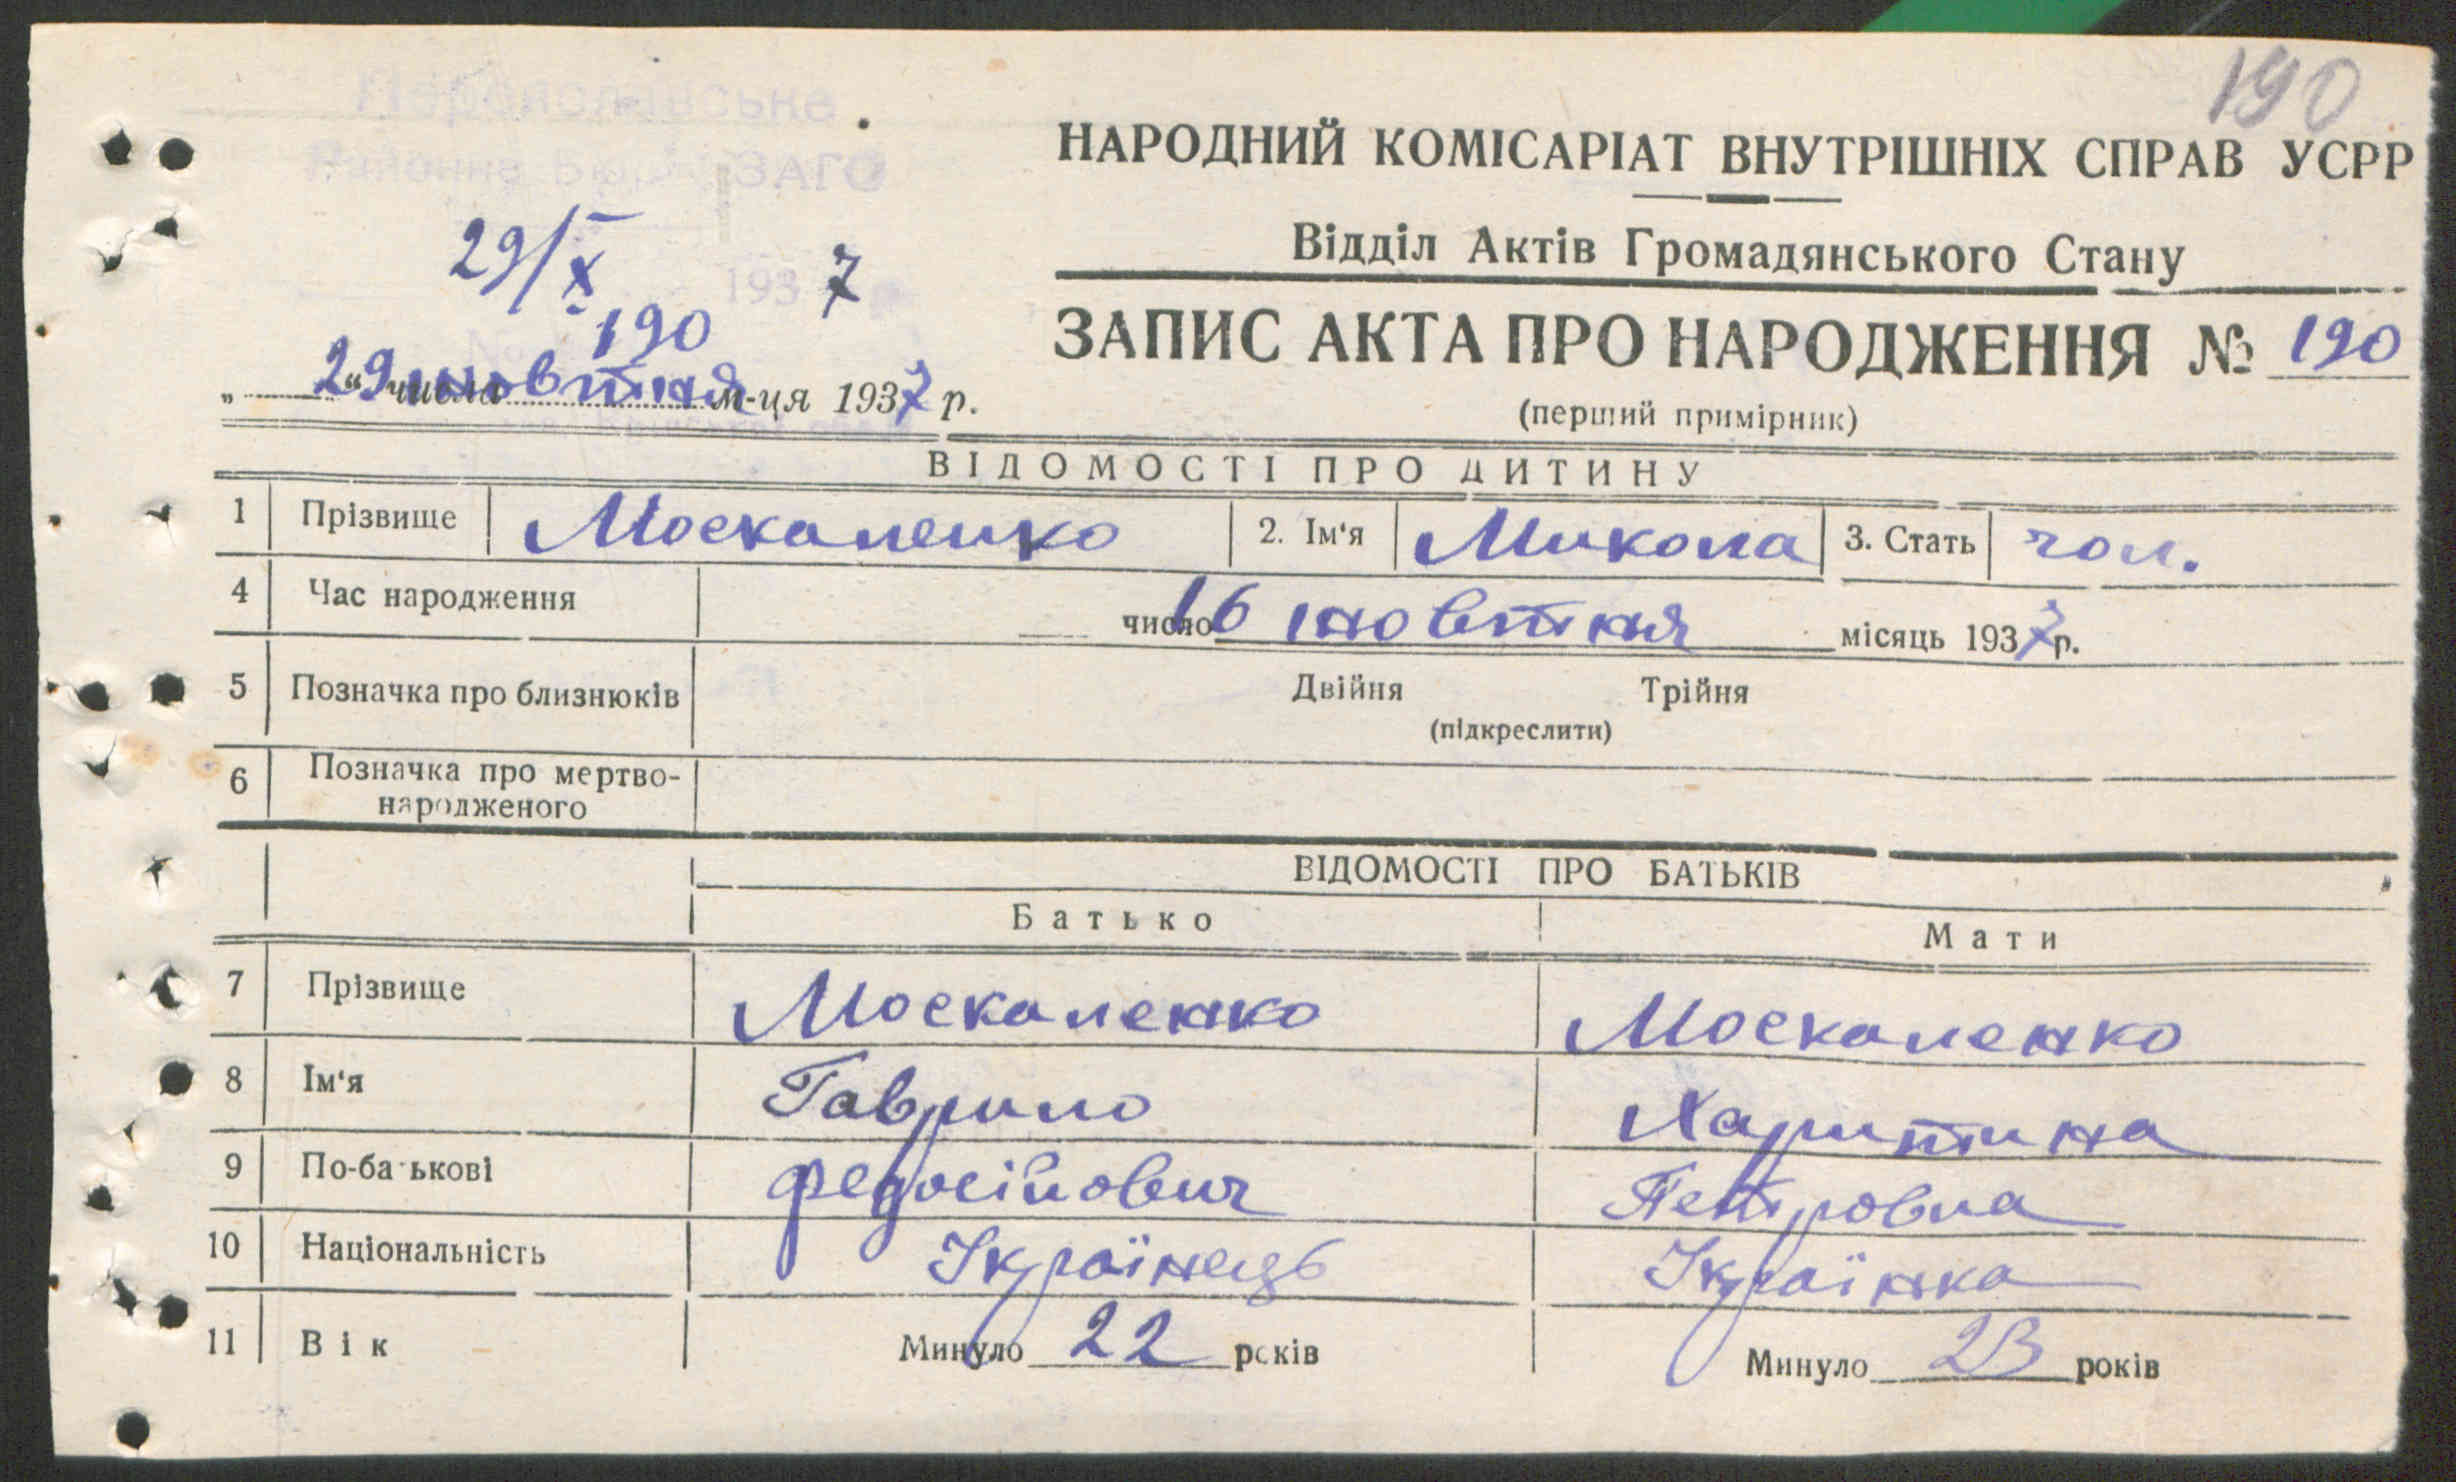 190
НАРОДНИЙ КОМІСАРІАТ ВНУТРІШНІХ СПРАВ УСРР
Відділ Актів Громадянського Стану
ЗАПИС АКТА ПРО НАРОДЖЕННЯ № 190
(перший примірник)
Районне Бюро ЗАГС
29/X 1937
190
„29“ числа жовтня м-ця 1937 р.
ВІДОМОСТІ ПРО ДИТИНУ
1 Прізвище Москаленко 2. Ім'я Микола 3. Стать чол.
4 Час народження число 16 жовтня місяць 1937 р.
5 Позначка про близнюків Двійня Трійня
(підкреслити)
6 Позначка про мертво-
народженого
ВІДОМОСТІ ПРО БАТЬКІВ
Батько Мати
7 Прізвище Москаленко Москаленко
8 Ім'я Гаврило Харитина
9 По-батькові Федосійович Петровна
10 Національність Українець Українка
11 Вік Минуло 22 років Минуло 23 років